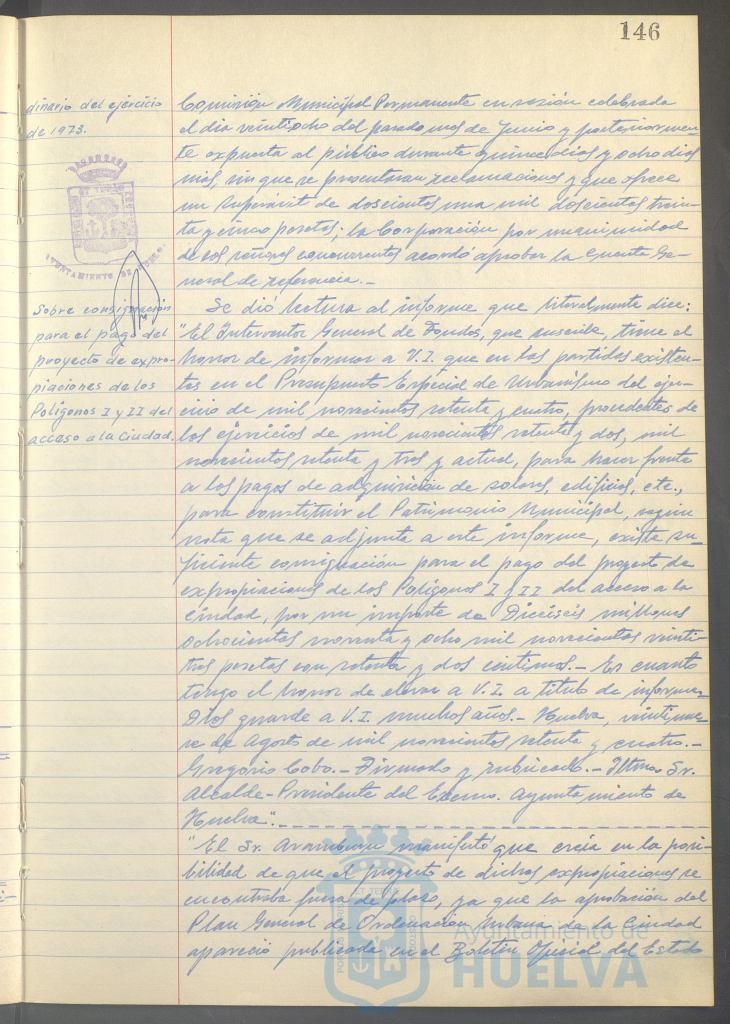 146
dinario del ejercicio
de 1973.
Comisión Municipal Permanente en sesión celebrada
el dia veintiocho del pasado mes de Junio y posteriormen-
te expuesta al público durante quince dias y ocho dias
mas, sin que se presentaran reclamaciones y que ofrece
un superávit de doscientas una mil doscientas trein-
ta y cinco pesetas; la Corporación por unanimidad
de los señores concurrentes acordó aprobar la Cuenta Ge-
neral de referencia.-
AYUNTAMIENTO DE HUELVA
Sobre consignación
para el pago del
proyecto de expro-
piaciones de los
Polígonos I y II del
acceso a la Ciudad.
Se dió lectura al informe que literalmente dice:
"El Interventor General de Fondos, que suscribe, tiene el
honor de informar a V.I. que en las partidas existen-
tes en el Presupuesto Especial de Urbanismo del ejer-
cicio de mil novecientos setenta y cuatro, procedentes de
los ejercicios de mil novecientos setenta y dos, mil
novecientos setenta y tres y actual, para hacer frente
a los pagos de adquisición de solares, edificios, etc.,
para constituir el Patrimonio Municipal, según
nota que se adjunta a este informe, existe su-
ficiente consignación para el pago del proyecto de
expropiaciones de los Polígonos I y II del acceso a la
Ciudad, por un importe de Dieciseis millones
ochocientas noventa y ocho mil novecientas veinti-
tres pesetas con setenta y dos céntimos.- Es cuanto
tengo el honor de elevar a V.I. a titulo de informe.
Dios guarde a V.I. muchos años.- Huelva, veintinue-
ve de Agosto de mil novecientos setenta y cuatro.-
Gregorio Cobo.- Firmado y rubricado.- Iltmo. Sr.
Alcalde-Presidente del Excmo. Ayuntamiento de
Huelva".
"El Sr. Aramburu manifestó que creia en la posi-
bilidad de que el proyecto de dichas expropiaciones se
encontraba fuera de plazo, ya que la aprobación del
Plan General de Ordenación Urbana de la Ciudad
apareció publicada en el Boletín Oficial del Estado
Ayuntamiento de
HUELVA